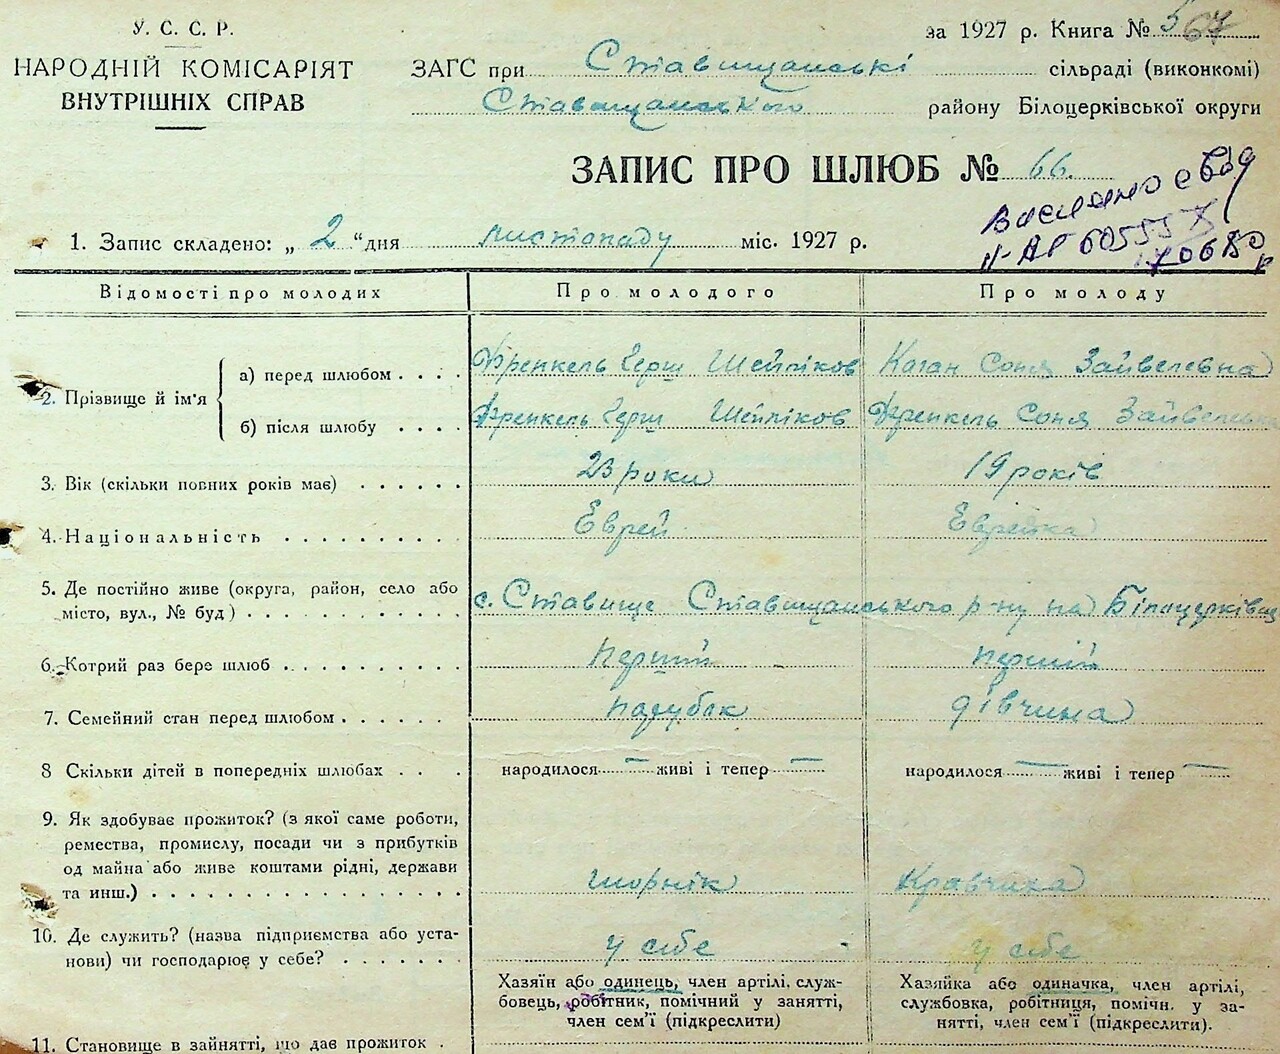 У. С. С. Р.
НАРОДНІЙ КОМІСАРІЯТ
ВНУТРІШНІХ СПРАВ
за 1927 р. Книга №
ЗАГС при Ставищанські сільраді (виконкомі)
Ставищанського району Білоцерківської округи
ЗАПИС ПРО ШЛЮБ № 66.
1. Запис складено: „ 2 “ дня листопаду міс. 1927 р.
Відомості про молодих Про молодого Про молоду
2. Прізвище й ім'я
а) перед шлюбом . . . . Френкель Герш Шейліков Каган Соня Зайвелевна
б) після шлюбу . . . . Френкель Герш Шейліков Френкель Соня
3. Вік (скільки повних років має) . . . . . . 23 роки 19 років
4. Національність . . . . . . . . . . Еврей Еврейка
5. Де постійно живе (округа, район, село або
місто, вул., № буд.) . . . . . . . . . . с. Ставище Ставищанського р-ну на
6. Котрий раз бере шлюб . . . . . . . . . Перший перший
7. Семейний стан перед шлюбом . . . . . . парубок дівчина
8 Скільки дітей в попередніх шлюбах . . . народилося — живі і тепер — народилося — живі і тепер —
9. Як здобуває прожиток? (з якої саме роботи,
ремества, промислу, посади чи з прибутків
од майна або живе коштами рідні, держави
та инш.) . . . . . . . . . . . . . . . Шорнік Кравчиха
10. Де служить? (назва підприємства або уста-
нови) чи господарює у себе? . . . . . . . у себе у себе
Хазяїн або одинець, член артілі, служ-
бовець, робітник, помічний у занятті,
член сем'ї (підкреслити)
Хазяйка або одиначка, член артілі,
службовка, робітниця, помічн. у за-
нятті, член сем'ї (підкреслити).
11. Становище в зайнятті, що дає прожиток .